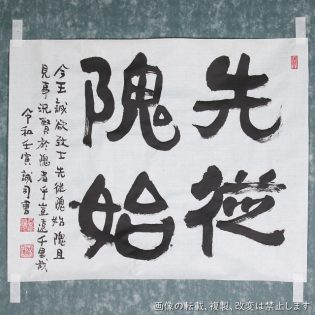 先從
隗始
今王誠欲致士先從隗始隗且
見事況賢於隗者乎豈遠千里哉
令和壬寅誠司書
画像の転載、複製、改変は禁止します